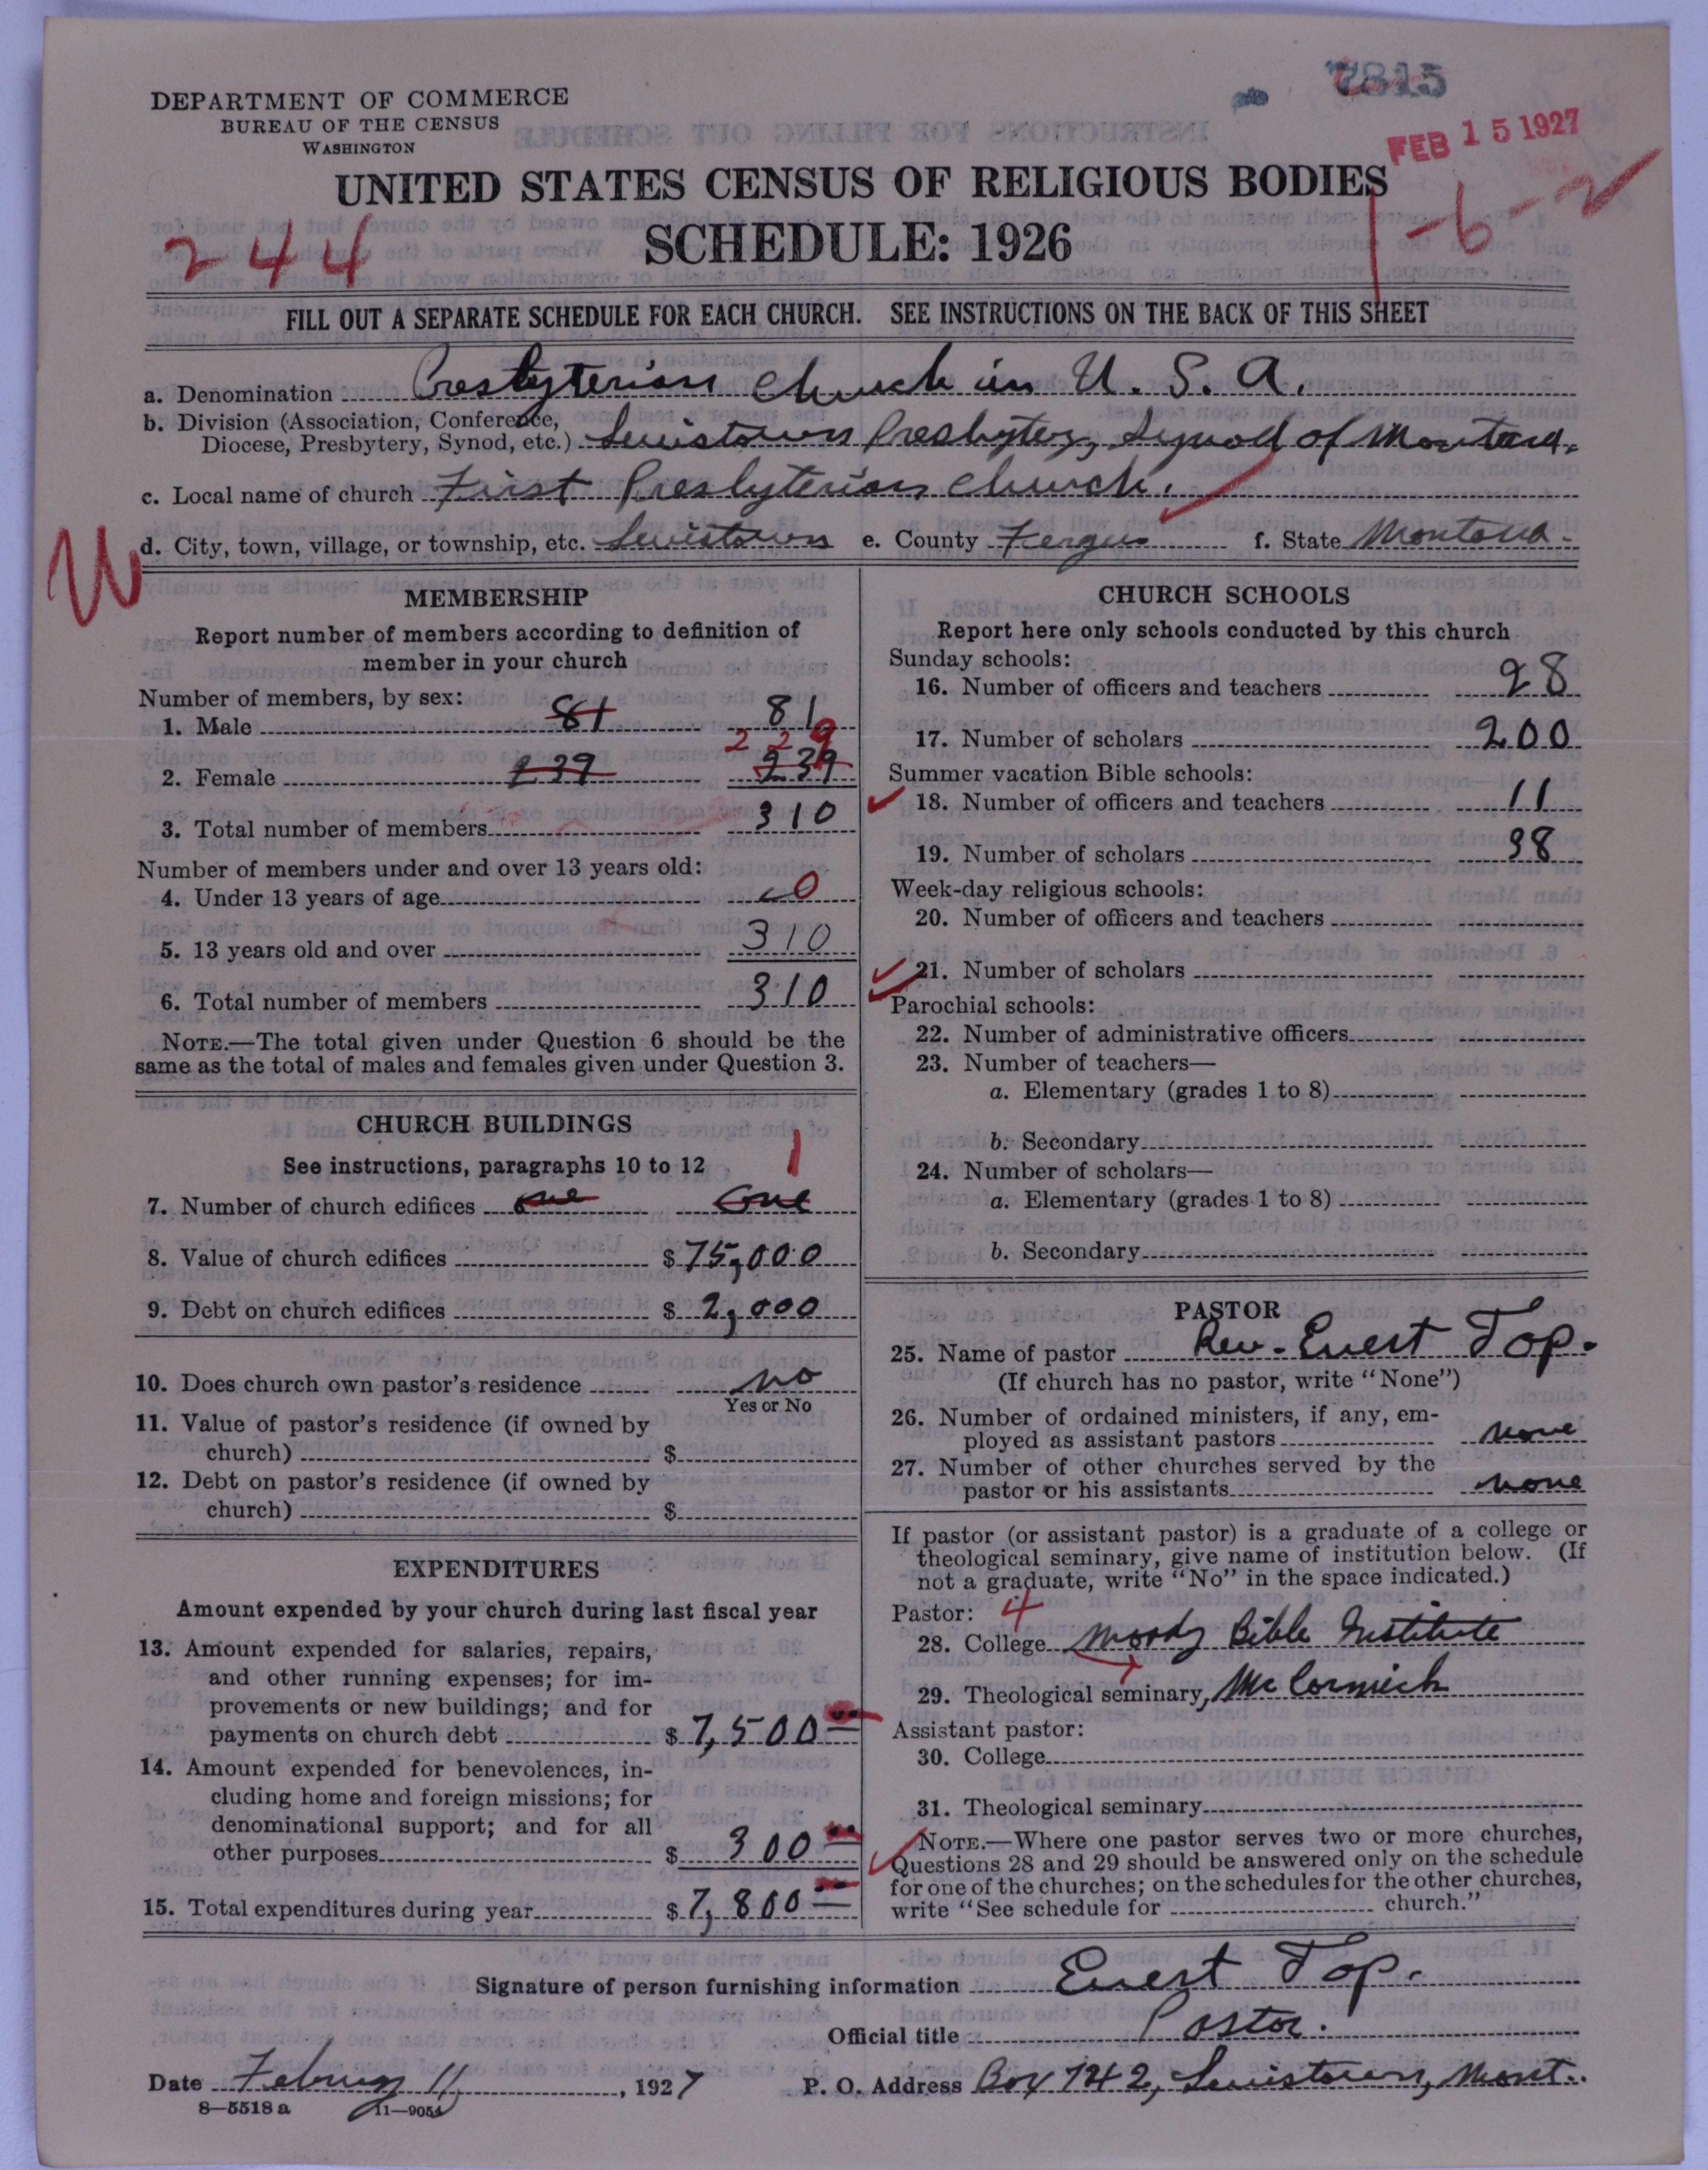 7815
DEPARTMENT OF COMMERCE
BUREAU OF THE CENSUS
WASHINGTON
FEB 15 1927
UNITED STATES CENSUS OF RELIGIOUS BODIES
SCHEDULE: 1926
244
1-6-2
FILL OUT A SEPARATE SCHEDULE FOR EACH CHURCH. SEE INSTRUCTIONS ON THE BACK OF THIS SHEET
a. Denomination Presbyterian Church in U. S. A.
b. Division (Association, Conference,
Diocese, Presbytery, Synod, etc.) Lewistown Presbytery, Synod of Montana.
c. Local name of church First Presbyterian Church.
d. City, town, village, or township, etc. Lewistown e. County Fergus f. State Montana.
MEMBERSHIP
Report number of members according to definition of
member in your church
Number of members, by sex:
1. Male 81 81
229
2. Female 239 239
3. Total number of members 310
Number of members under and over 13 years old:
4. Under 13 years of age 0
5. 13 years old and over 310
6. Total number of members 310
NOTE.—The total given under Question 6 should be the
same as the total of males and females given under Question 3.
CHURCH BUILDINGS
See instructions, paragraphs 10 to 12
1
7. Number of church edifices one One
8. Value of church edifices $75,000
9. Debt on church edifices $2,000
10. Does church own pastor's residence no
Yes or No
11. Value of pastor's residence (if owned by
church) $
12. Debt on pastor's residence (if owned by
church) $
EXPENDITURES
Amount expended by your church during last fiscal year
13. Amount expended for salaries, repairs,
and other running expenses; for im-
provements or new buildings; and for
payments on church debt $7,500
14. Amount expended for benevolences, in-
cluding home and foreign missions; for
denominational support; and for all
other purposes $300
15. Total expenditures during year $7,800
CHURCH SCHOOLS
Report here only schools conducted by this church
Sunday schools:
16. Number of officers and teachers 28
17. Number of scholars 200
Summer vacation Bible schools:
18. Number of officers and teachers 11
19. Number of scholars 98
Week-day religious schools:
20. Number of officers and teachers
21. Number of scholars
Parochial schools:
22. Number of administrative officers
23. Number of teachers—
a. Elementary (grades 1 to 8)
b. Secondary
24. Number of scholars—
a. Elementary (grades 1 to 8)
b. Secondary
PASTOR
25. Name of pastor Rev. Evert Top.
(If church has no pastor, write "None")
26. Number of ordained ministers, if any, em-
ployed as assistant pastors none
27. Number of other churches served by the
pastor or his assistants none
If pastor (or assistant pastor) is a graduate of a college or
theological seminary, give name of institution below. (If
not a graduate, write "No" in the space indicated.)
Pastor: 4
28. College Moody Bible Institute
29. Theological seminary, McCormick
Assistant pastor:
30. College
31. Theological seminary
NOTE.—Where one pastor serves two or more churches,
Questions 28 and 29 should be answered only on the schedule
for one of the churches; on the schedules for the other churches,
write "See schedule for church."
Signature of person furnishing information Evert Top.
Official title Pastor.
Date February 11, 1927 P. O. Address Box 742, Lewistown, Mont.
8—5518 a 11—9054